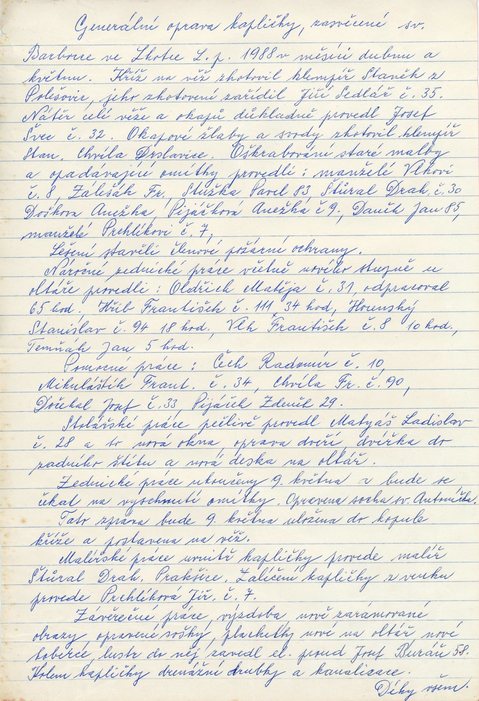 Generální oprava kapličky, zasvěcené sv.
Barbore ve Lhotce L. p. 1988 v měsíci dubnu a
květnu. Kříž na věž zhotovil klempíř Staněk z
Polešovic, jeho zhotovení zařídil Jiří Sedlář č. 35.
Nátěr celé věže a okapů důkladně provedl Josef
Švec č. 32. Okapové žlaby a svody zhotovil klempíř
Stan. Chvíla Drslavice. Oškrabování staré malby
a opadávající omítky provedli: manželé Vlkovi
č. 8, Zálešák Fr. Stužka Pavel 83 Šťůral Drah. č. 30
Dočkova Anežka, Pijáčková Anežka č 9, Daněk Jan 85,
manželé Prchlíkovi č. 7,
Lešení stavěli členové požární ochrany.
Náročné zednické práce včetně nového stupně u
oltáře provedli: Oldřich Matěja č. 31, odpracoval
65 hod. Hříb František č. 111, 34 hod, Horenský
Stanislav č. 94 18 hod, Vlk František č. 8 10 hod,
Temňák Jan 5 hod.
Pomocné práce: Čech Radomír č. 10,
Mikuláštík Frant. č. 34, Chvíla Fr. č. 90,
Dočkal Josef č. 33 Pijáček Zdeněk 29.
Stolářské práce pečlivě provedl Matyáš Ladislav
č. 28 a to nová okna oprava dveří, dvířka do
zadního štítu a nová deska na oltář.
Zednické práce ukončeny 9. května a bude se
čekat na vyschnutí omítky. Opravena socha sv Antoníčka.
Tato zpráva bude 9. května uložena do kopule
kříže a postavena na věž.
Malířské práce uvnitř kapličky provede malíř
Šťůral Drah. Prakšice. Zalíčení kapličky z venku
provede Prchlíkova Jiř. č. 7.
Závěrečné práce, výzdoba nově zarámované
obrazy opravené sošky, plachetky nové na oltář nové
koberce lustr do něj zavedl el. proud Josef Buráň 58.
Kolem kapličky drenážní trubky a kanalizace.
Díky všem.